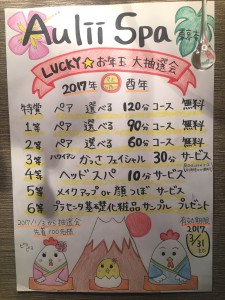 Aulii Spa
LUCKY☆お年玉 大抽選会
2017年 酉年
特賞 ペア 選べる 120分コース 無料
1等 ペア 選べる 90分コース 無料
2等 ペア 選べる 60分コース 無料
3等 ハワイアン かっさフェイシャル 30分 サービス
4等 ヘッドスパ 10分 サービス
5等 メイクアップor顔つぼ サービス
6等 プラセンタ基礎化粧品サンプル プレゼント
2017ハノとせく抽選会
先着100名様
有効期限
2017
3/31